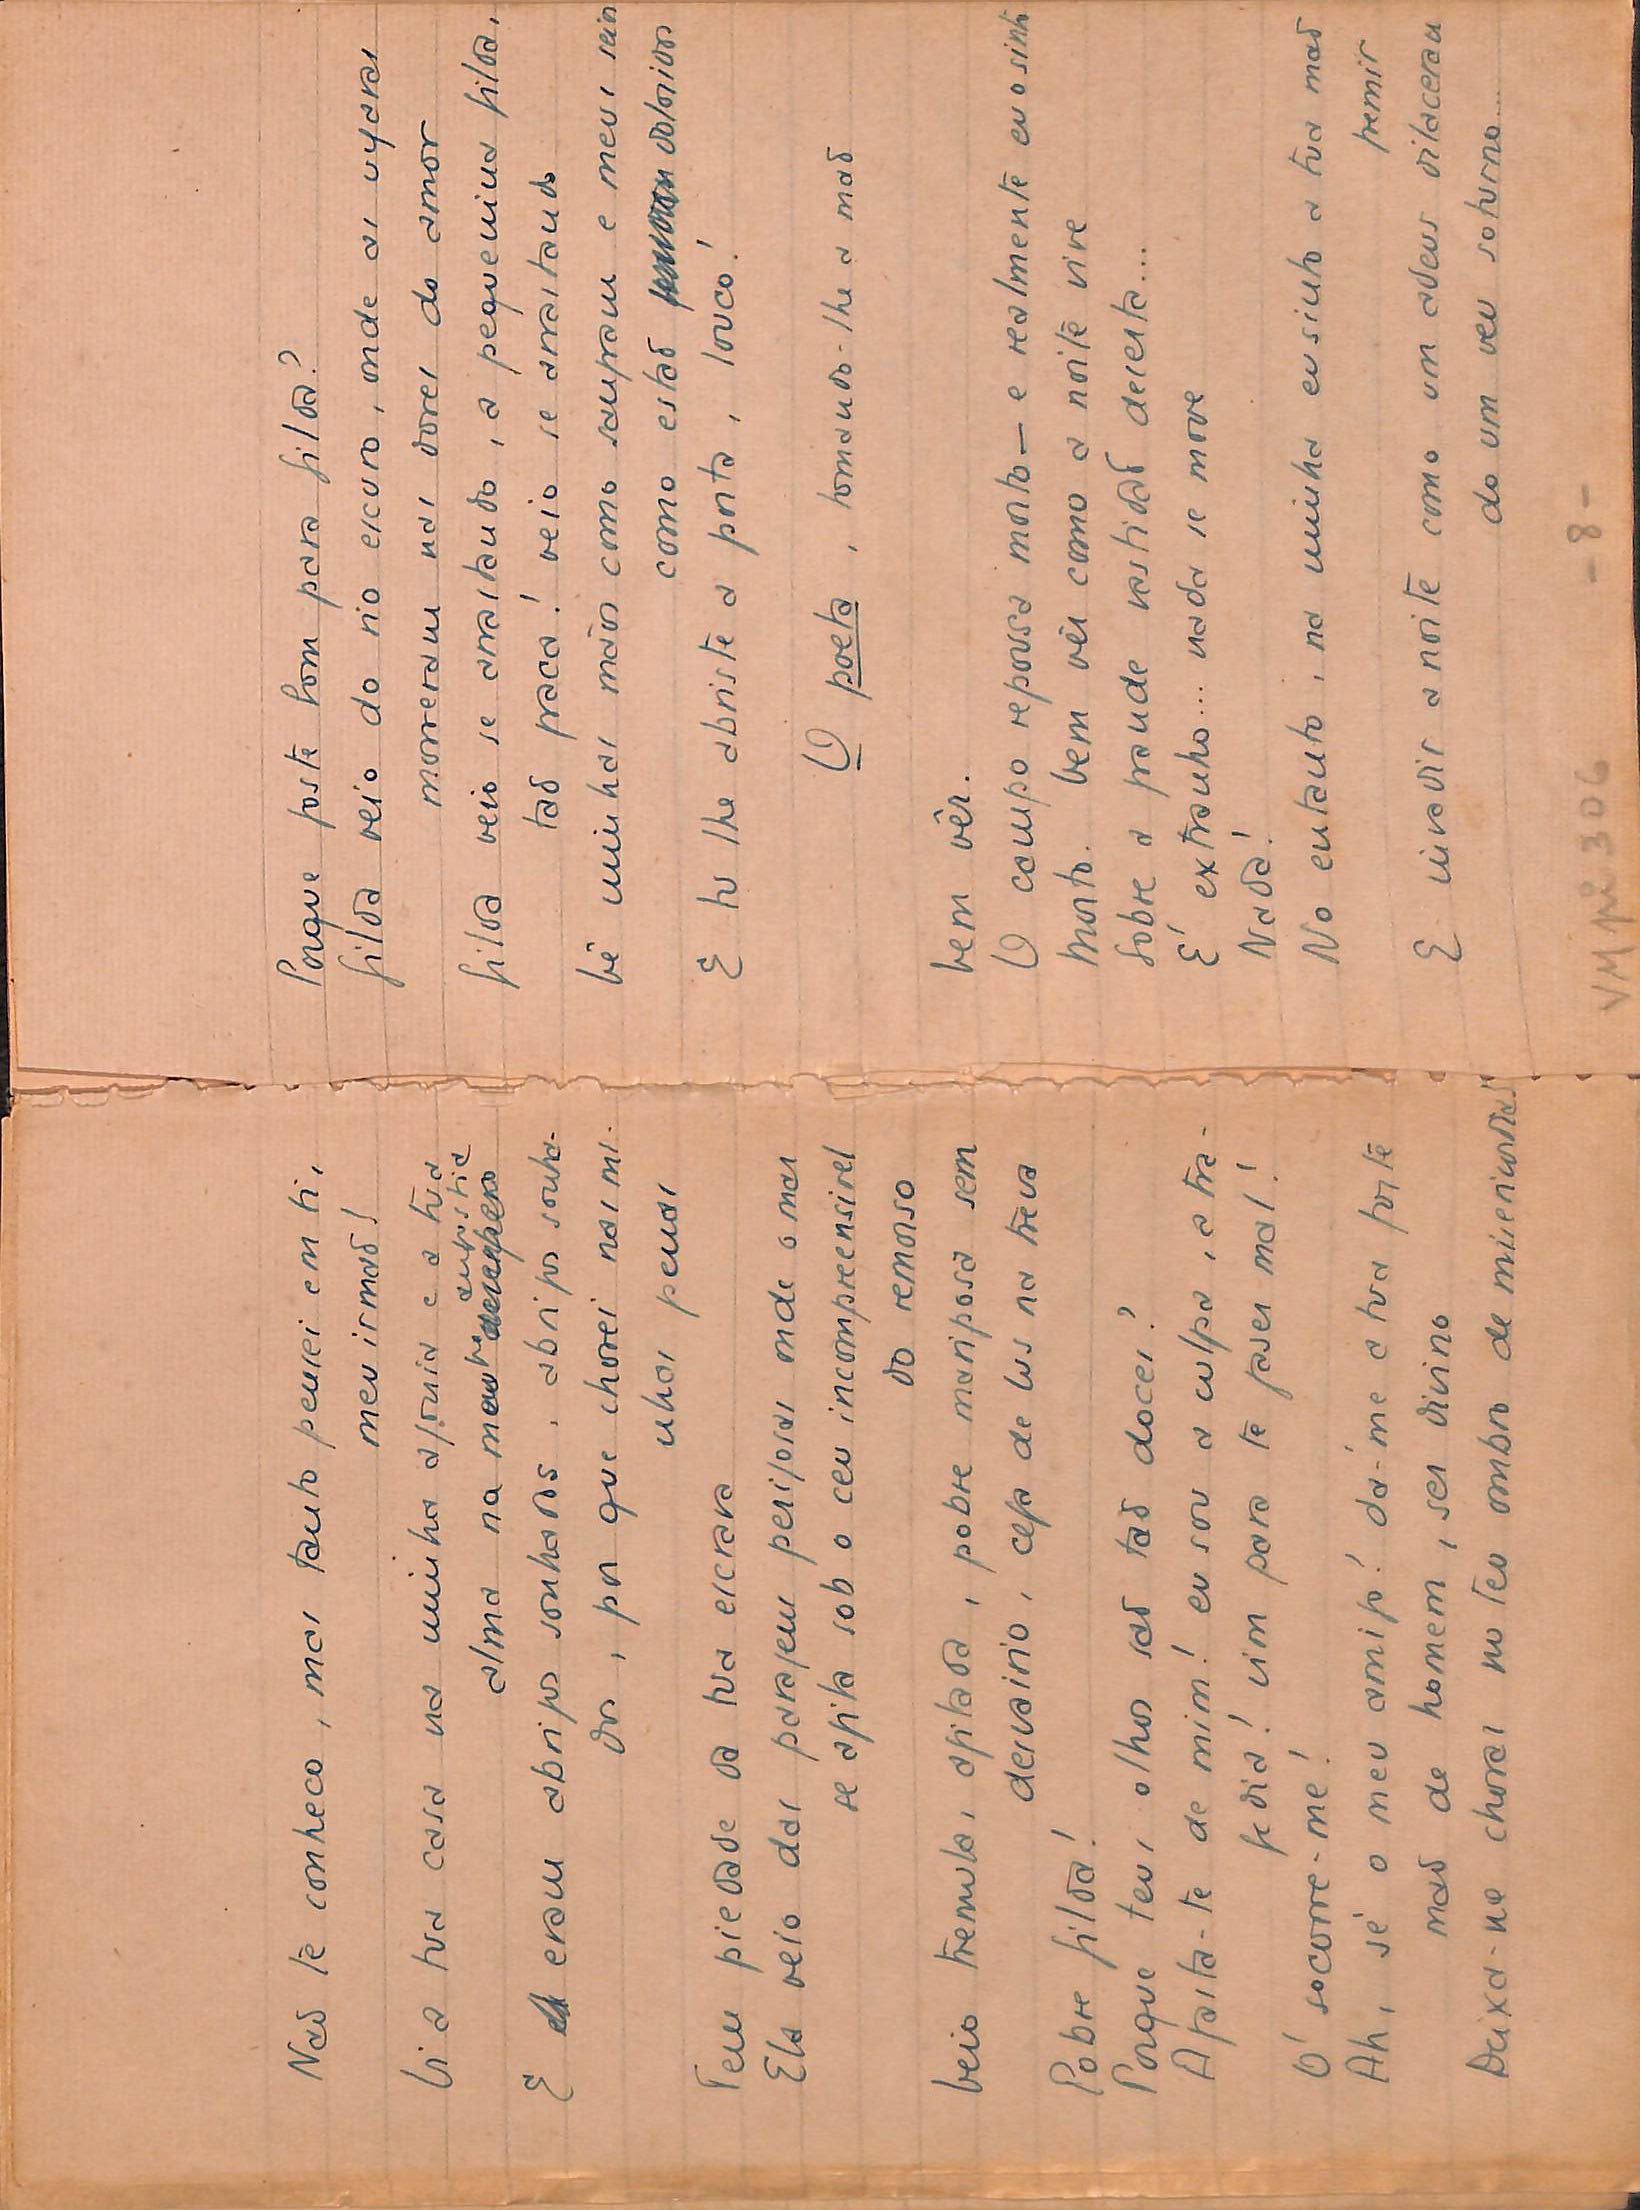 Naõ te conheço, mas tanto pensei em ti,
meu irmaõ!
Vi a tua casa na minha agonia e a tua
alma na minha angustia
E eram abrigos sonhados, abrigos sonha-
dos, por que chorei nas mi-
nhas penas
Tem piedade da tua escrava
Ela veio das paragens perigosas onde o mar
se agita sob o ceu incompreensivel
do remorso
Veio tremula, agitada, pobre mariposa sem
desvairio, cega de luz na treva
Pobre Gilda!
Porque teus olhos saõ taõ doces?
Aparta-te de mim! eu sou a culpa, a tra-
gedia! vim para te fazer mal!
O' socorre-me!
Ah, sê o meu amigo! dá-me a tua forte
maõ de homem, ser divino
Deixa-me chorar no teu ombro de misericordia!
Porque foste bom para Gilda?
Gilda veio do rio escuro, onde as uyaras
morreram nas dores do amor
Gilda veio se arrastando, a pequenina Gilda,
taõ fraca! veio se arrastando
Vê minhas mãos como sangram e meus seios
como estaõ doloridos
E tu lhe abriste a porta, louco!
O poeta, tomando-lhe a maõ
Vem vêr.
O campo repousa morto — e realmente eu o sinto
morto. Vem vêr como a noite vive
Sobre a grande vastidaõ deserta...
E' extranho... nada se move
Nada!
No entanto, na minha eu sinto a tua maõ
fremir
E invadir a noite como um adeus dilaceran
do um veu soturno...
VM pi 306 -8-